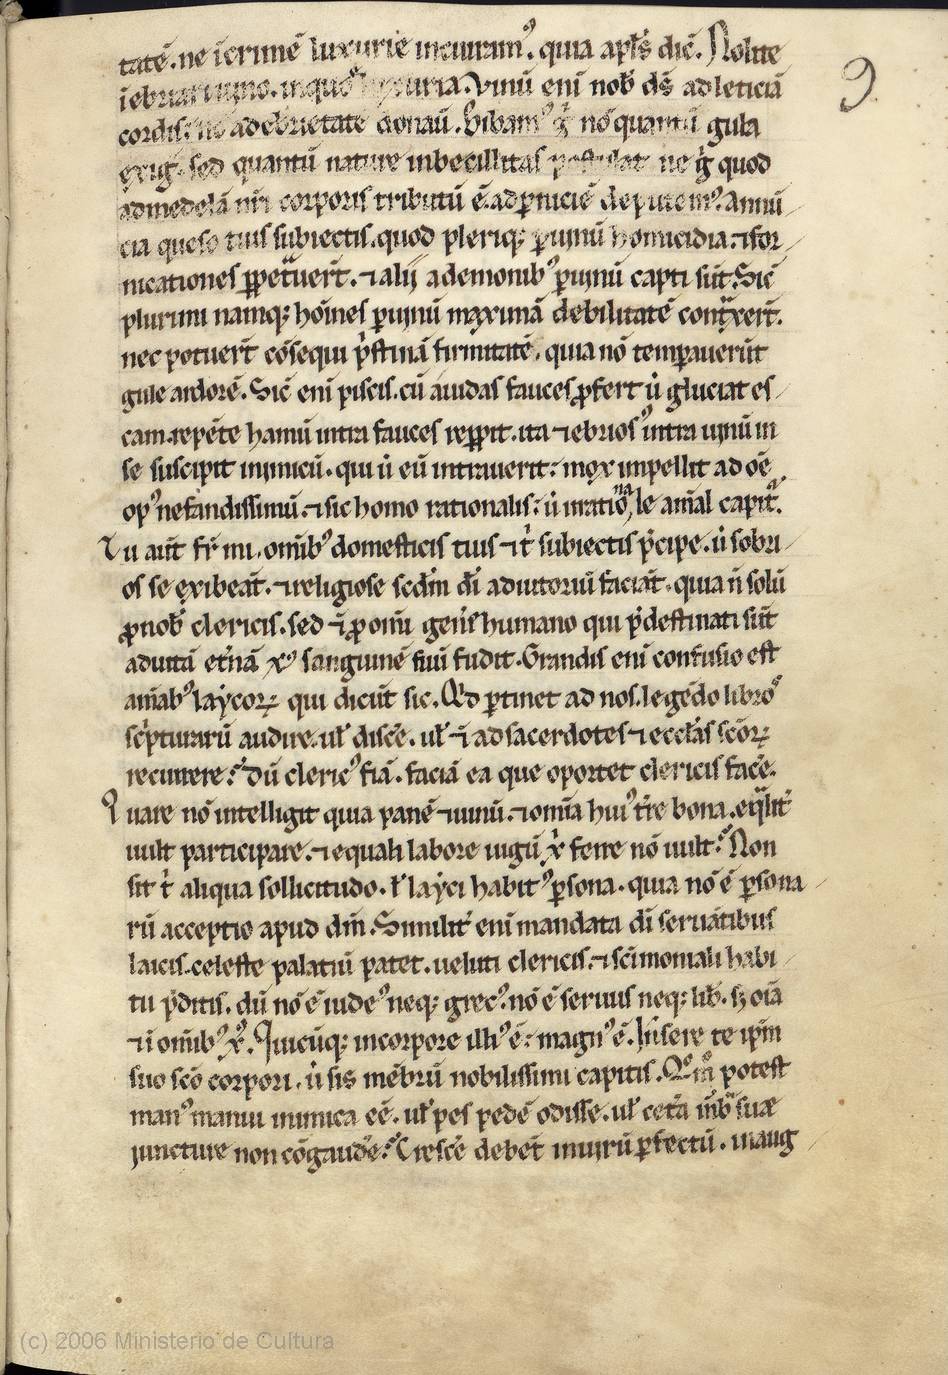 tatē. ne īcrimē luxurie incurramꝰ. quia apl̄s dic̄. Nolite
īebriari uino. in quo luxuria. Vinū eni nob̄ ds̄ ad leticiā
cordis: nō ad ebrietatē donau̅. Bibamꝰ g̊ nō quantū gula
exig. sed quantū nature inbecillitas postulat. ne g̊ quod
ad medelā nr̄i corporis tributū ē. ad ꝑniciē deputemꝰ. Annū
cia queso tuis subiectis. quod pleriqꝫ ꝑ uinū homicidia. ⁊ for
nicationes ꝑpetuer̄t. ⁊ alij a demonibꝰ ꝑ uinū capti sūt. Sic̄
plurimi namqꝫ hoīnes ꝑ uinū maximā debilitatē contͣxer̄t.
nec potuer̄t cōsequi pͥstinā firmitatē. quia nō temꝑauerūt
gule ardorē. Sic̄ eni piscis. cū auidas fauces ꝓfert ut̄ gluciat es
cam. repēte hamū intra fauces reꝑit. ita ⁊ ebriosꝰ intra uinū in
se suscipit inimicū. qui ū eū intrauerit: mox impellit ad oē
opꝰ nefandissimū. ⁊ sic homo rationalis: ū irationale aīal capit̄.
Tu aut̄ fr̄ mi. omībꝰ domesticis tuis ⁊ t̄ subiectis pͥcipe. ū sobri
os se exibeāt. ⁊ religiose scd̄m dī adiutoriū faciāt. quia n̄ solū
ꝓ nob̄ clericis. sed ⁊ ꝓ omī gen̄e humano qui pͥdestinati sūt
ad uitā et̄nā xꝰ sanguinē suū fudit. Grandis eni confusio est
aīabꝰ laycoꝝ qui dicūt sic. Qd ꝑtinet ad nos. legēdo libros
sc̄pturarū audire. ul̄ disce̅. ul̄ ⁊ ad sacerdotes ⁊ eccl̄as scōꝝ
recurrere? dū clericꝰ fiā. faciā ea que oportet clericis face̅.
Quare nō intelligit quia panē ⁊ uinū. ⁊ omīa huiꝰ tr̄e bona. eqͣlit̄
uult participare. ⁊ equali labore iugū x̄ ferre nō uult? Non
sit t̄ aliqua sollicitudo. ł layci habitꝰ ꝑsona. quia nō ē ꝑsona
rū acceptio apud dm̄. Similit̄ eni mandata dī seruātibus
laicis. celeste palatiū patet. ueluti clericis. ⁊ sc̄imoniali habi
tu pͥditis. dū nō ē iudeꝰ neqꝫ grecꝰ. nō ē seruus neqꝫ lib̄. sꝫ oīa
⁊ ī omībꝰ xꝰ. Quicūqꝫ in corpore illiꝰ ē: magnꝰ ē. Insere te ipm̄
suo scō corpori. ū sis mēbrū nobilissimi capitis. Qm̄ potest
manꝰ manui inimica eē. ul̄ pes pedē odisse. ul̄ cet̄a mēbͣ suae
juncture non cōgaude̅? Cresce̅ debet̄ in uirū ꝑfectū. in aug
9
(c) 2006 Ministerio de Cultura